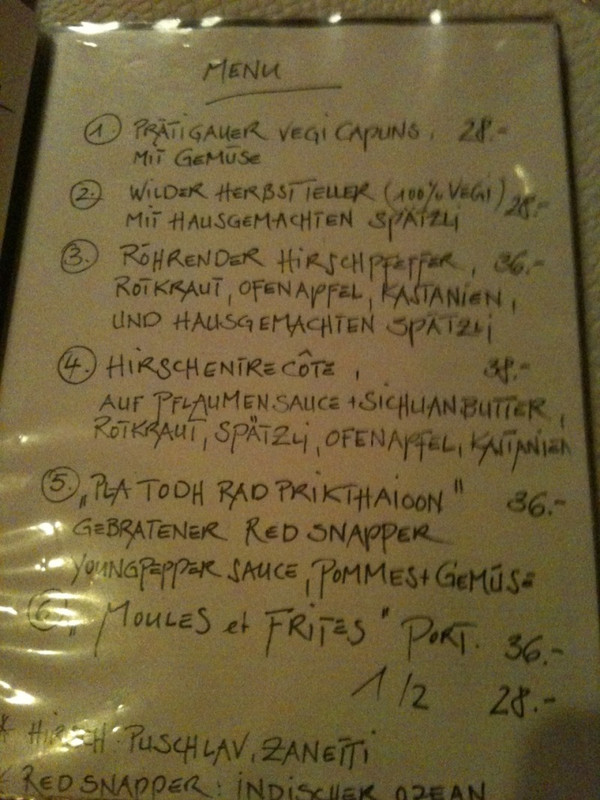 MENU
① PRÄTIGAUER VEGI CAPUNS, 28.-
MIT GEMÜSE
②. WILDER HERBSTTELLER (100% VEGI) 28.-
MIT HAUSGEMACHTEN SPÄTZLI
③. RÖHRENDER HIRSCHPFEFFER, 36.-
ROTKRAUT, OFENAPFEL, KASTANIEN,
UND HAUSGEMACHTEN SPÄTZLI
④. HIRSCHENTRECÔTE, 38.-
AUF PFLAUMENSAUCE + SICHUANBUTTER,
ROTKRAUT, SPÄTZLI, OFENAPFEL, KASTANIEN
⑤. "PLA TODH RAD PRIKTHAIOON" 36.-
GEBRATENER RED SNAPPER
YOUNGPEPPER SAUCE, POMMES + GEMÜSE
⑥. "MOULES et FRITES" PORT. 36.-
1/2 28.-
* HIRSCH: PUSCHLAV, ZANETTI
* RED SNAPPER: INDISCHER OZEAN